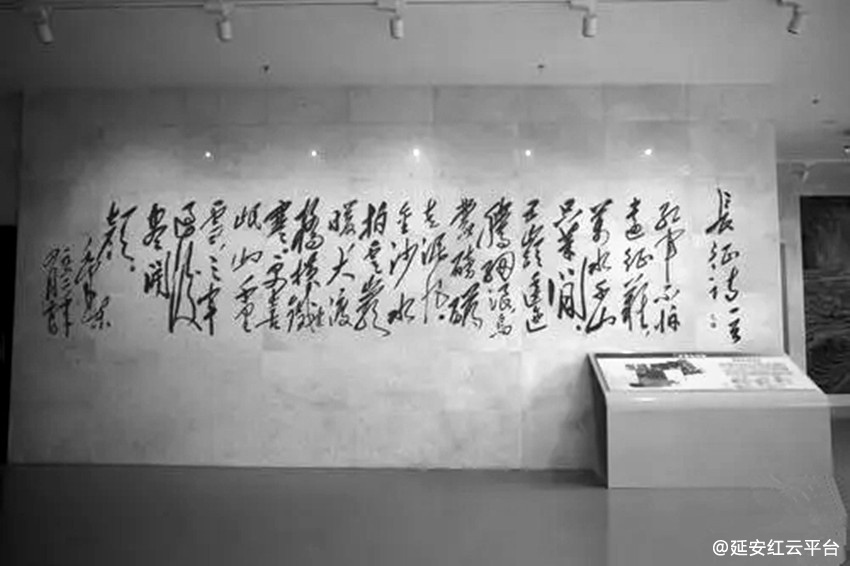 長征詩一首
紅軍不怕
遠征難
萬水千山
只等閒
五嶺逶迤
騰細浪烏
蒙磅礴
走泥丸
金沙水
拍雲崖
暖大渡
橋橫鐵索
寒更喜
岷山千里
雪三軍
過後
盡開
顏
毛澤東
@延安红云平台